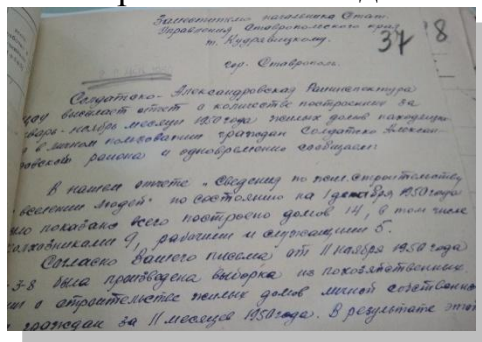 Заместителю начальника Стат.
Управления Ставропольского края
т. Кудрявицкому.
37 18
гор. Ставрополь.
Солдатско-Александровская Райинспектура
высылает отчет о количестве построенных за
январь-ноябрь месяцы 1950 года жилых домов находящих
в личном пользовании граждан Солдатско Алексан
ровского района и одновременно сообщает:
В нашем отчете „Сведения по жил. строительству
вселении людей" по состоянию на 1 декабря 1950 года
было показано всего построено домов 14, в том числе
колхозниками 9, рабочими и служащими 5.
Согласно Вашего письма от 11 ноября 1950 года
3-8 была произведена выборка из похозяйственных
о строительстве жилых домов личной собственно
граждан за 11 месяцев 1950 года. В результате этой